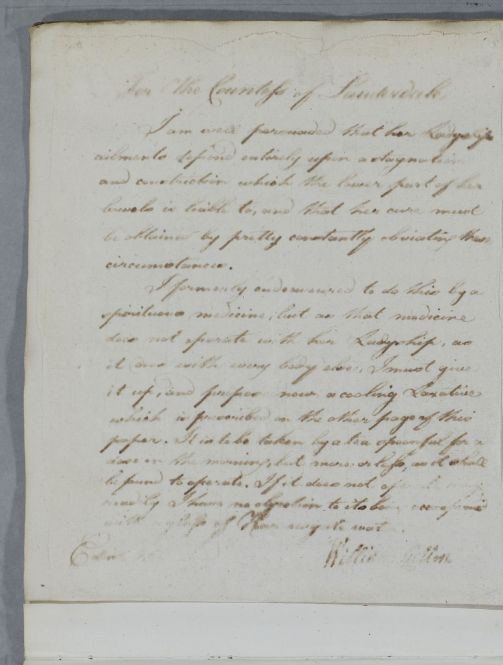 For the Countess of Lauderdale
I am well persuaded that her Ladyship
ailments depend entirely upon a stagnation
and constriction which the lower part of her
bowels is liable to, and that her cure must
be obtained by pretty constantly obviating these
circumstances.
I formerly endeavoured to do this by a
spirituous medicine, but as that medicine
does not operate with her Ladyship, as
it does with every body else, I must give
it up, and propose now, a cooling Laxative
which is prescribed on the other page of this
paper. It is to be taken by a tea spoonful for a
dose in the morning, but more or less, as it shall
be found to operate. If it does not
readily I have no objection to its being
with a glass of Harrowgate water.
William Cullen